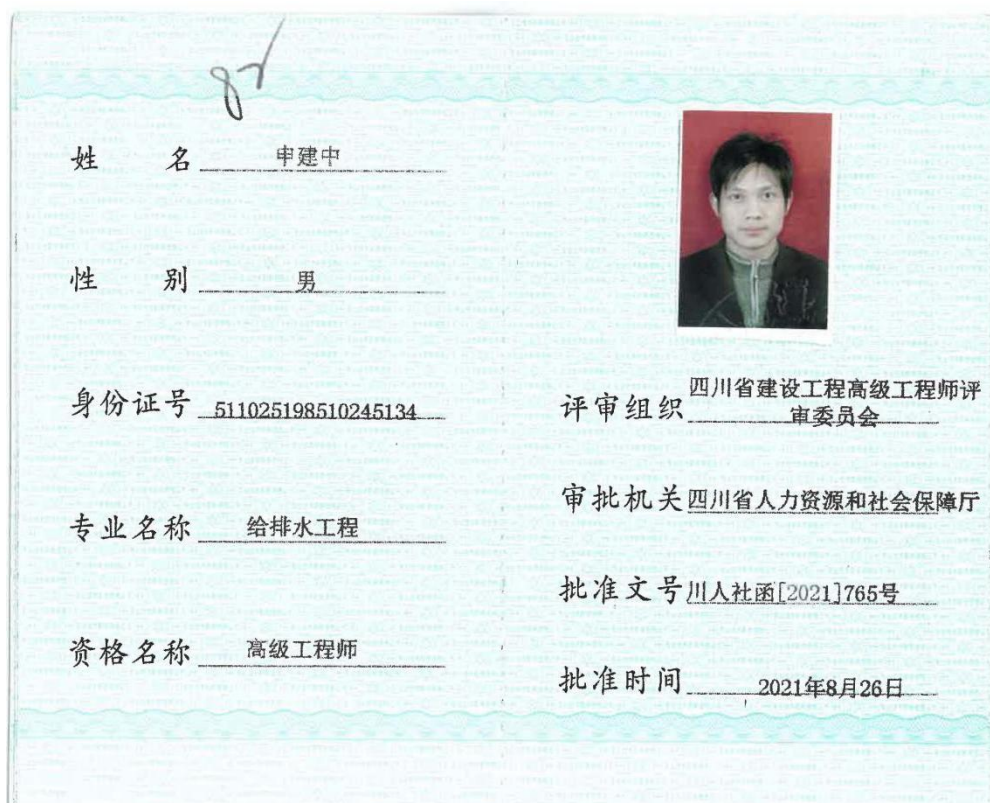 82
姓 名 申建中
性 别 男
身份证号 511025198510245134
专业名称 给排水工程
资格名称 高级工程师
评审组织 四川省建设工程高级工程师评
审委员会
审批机关 四川省人力资源和社会保障厅
批准文号 川人社函[2021]765号
批准时间 2021年8月26日